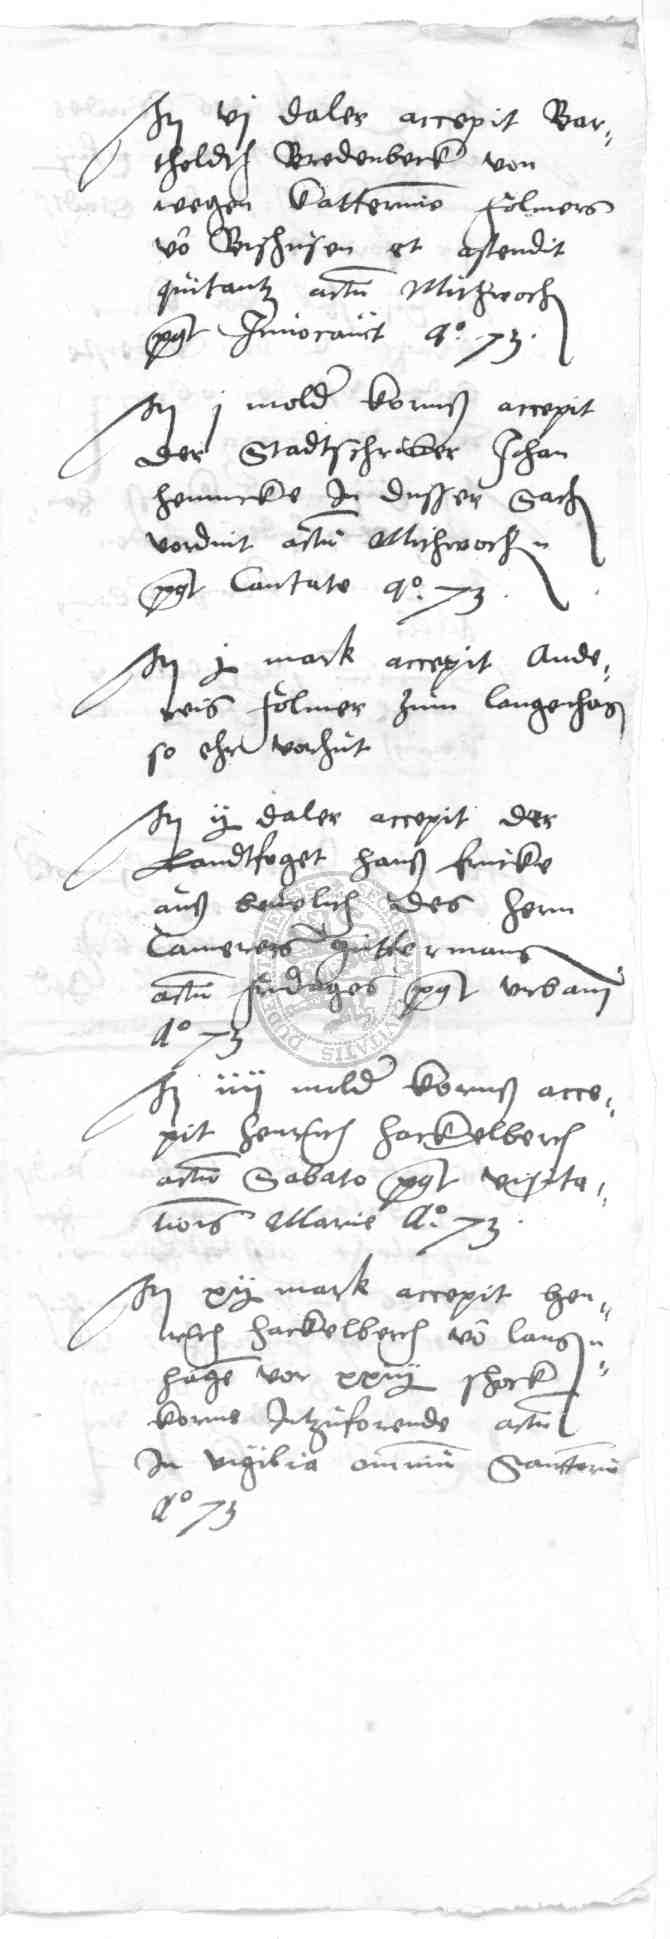 It vj daler accepit Bar„
tholdt Bredenbeck von
wegen Katternne Folmers
vō Beshusen et ostendit
quitantz actū Mitwoch
post Invocavit Aº. 73.
It j mold korns accepit
der Stadtschriber Johan
hennicke In dusser Sach
vordint actū Mitwoch
post Cantate Aº. 73.
It j mark accepit Andr„
wis Folmer zum langenhag
so ehr vorhut
It ij daler accepit der
Landtfoget hans fricke
aus bevelich des hern
Camerers guttermans
actū fridages post vrbani
Aº 73
It iiij mold korns acce„
pit henrich hackelberch
actū Sabato post visita„
tiois Marie Aº. 73.
It xij mark accepit hen„
rich hackelberch vō lang„
hagē vor xxiiij schock
korns Intzuforende actū
In vigilia omniū Sanctorū
Aº 73